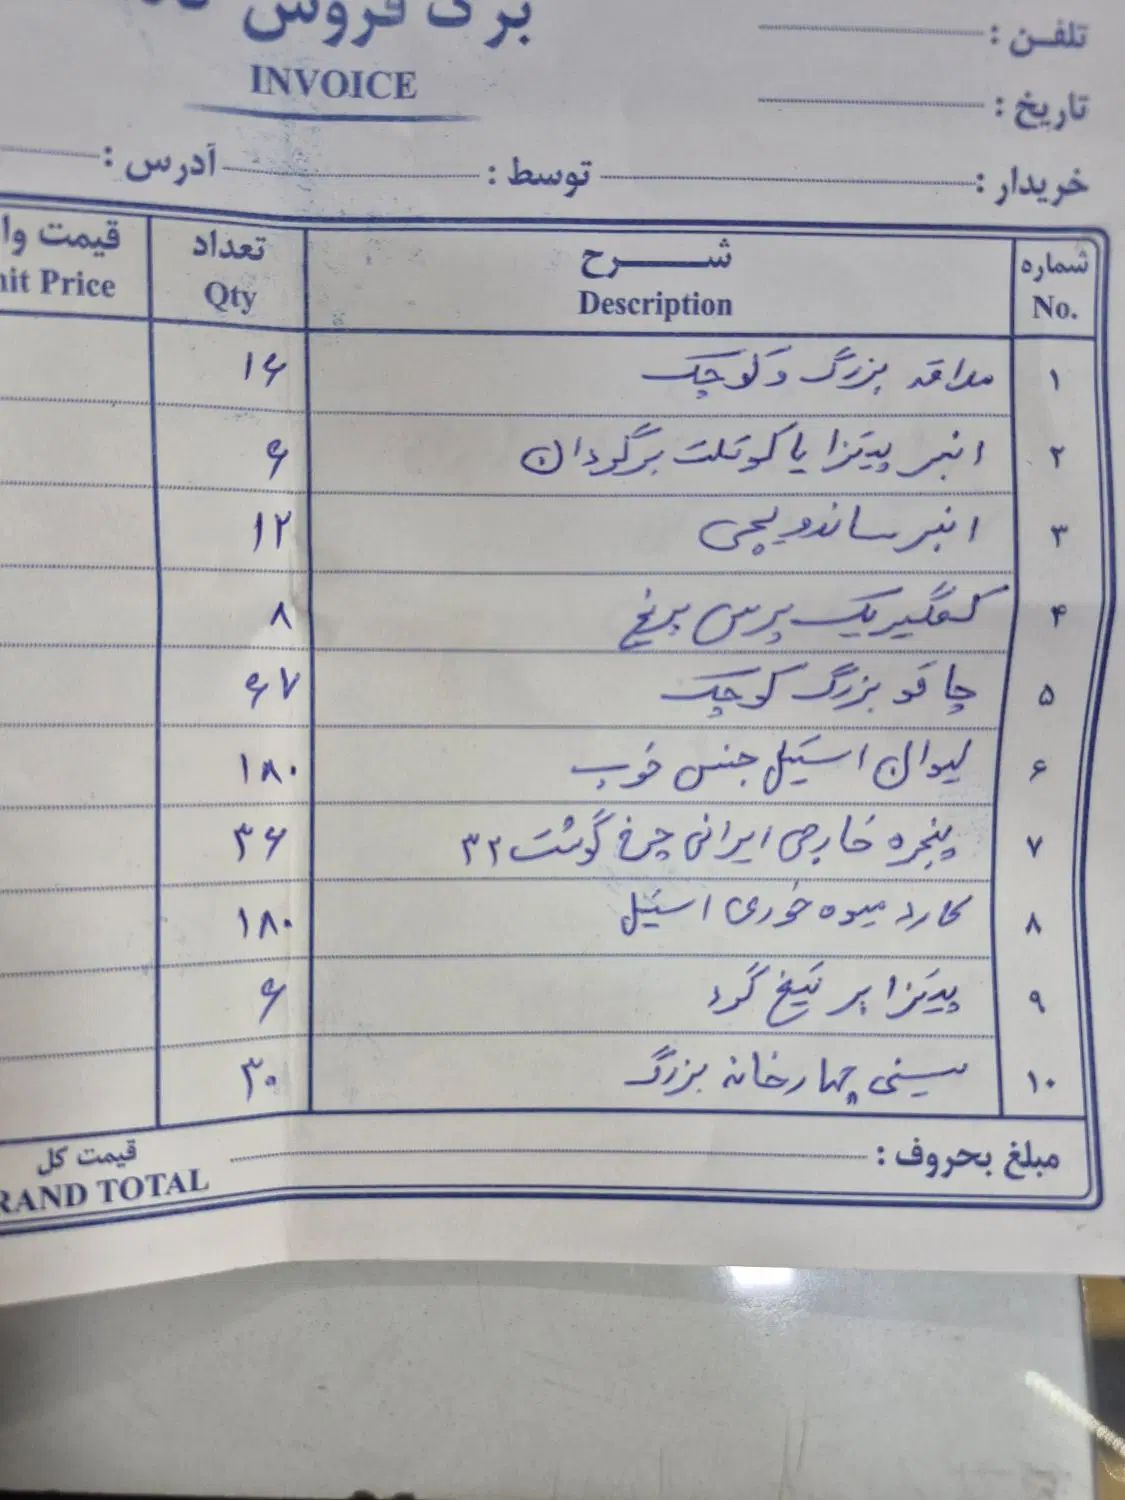 برگ فروش
INVOICE
تلفن :
تاریخ :
خریدار : توسط : آدرس :
شماره شرح تعداد قیمت وا
No. Description Qty nit Price
۱ ملاقه بزرگ و کوچک ۱۶
۲ انبر پیتزا یا کوتلت برگردان ۶
۳ انبر ساندویچی ۱۲
۴ کفگیر یک پرس برنج ۸
۵ چاقو بزرگ کوچک ۶۷
۶ لیوان استیل جنس خوب ۱۸۰
۷ پنجره خارجی ایرانی چرخ گوشت ۳۲ ۳۶
۸ کارد میوه خوری استیل ۱۸۰
۹ پیتزا بر تیغ گرد ۶
۱۰ سینی چهارخانه بزرگ ۳۰
مبلغ بحروف : قیمت کل
RAND TOTAL